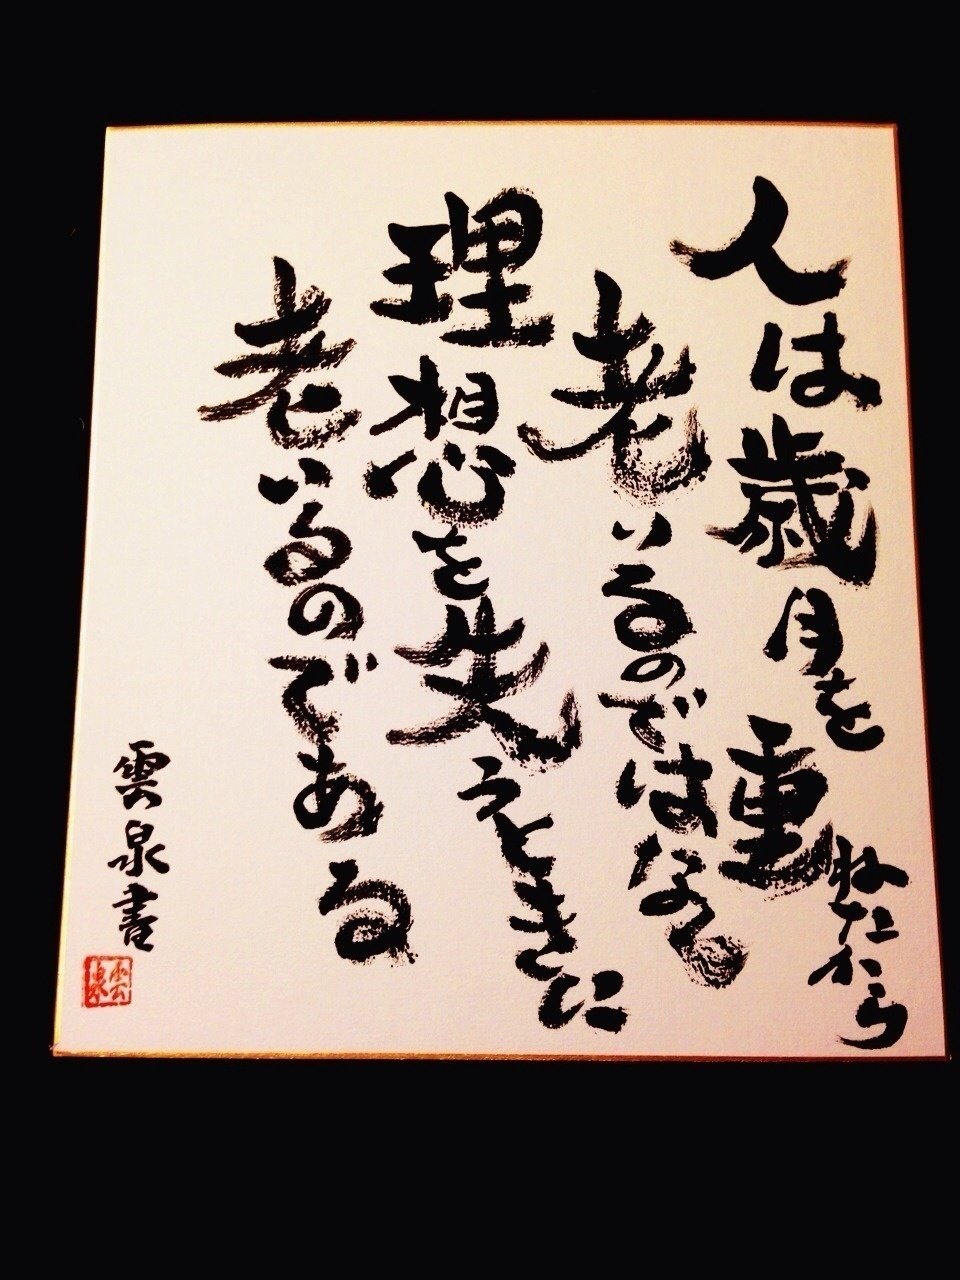 人は歳月を重ねたから
老いるのではない。
理想を失うときに
老いるのである
雲泉書
雲泉